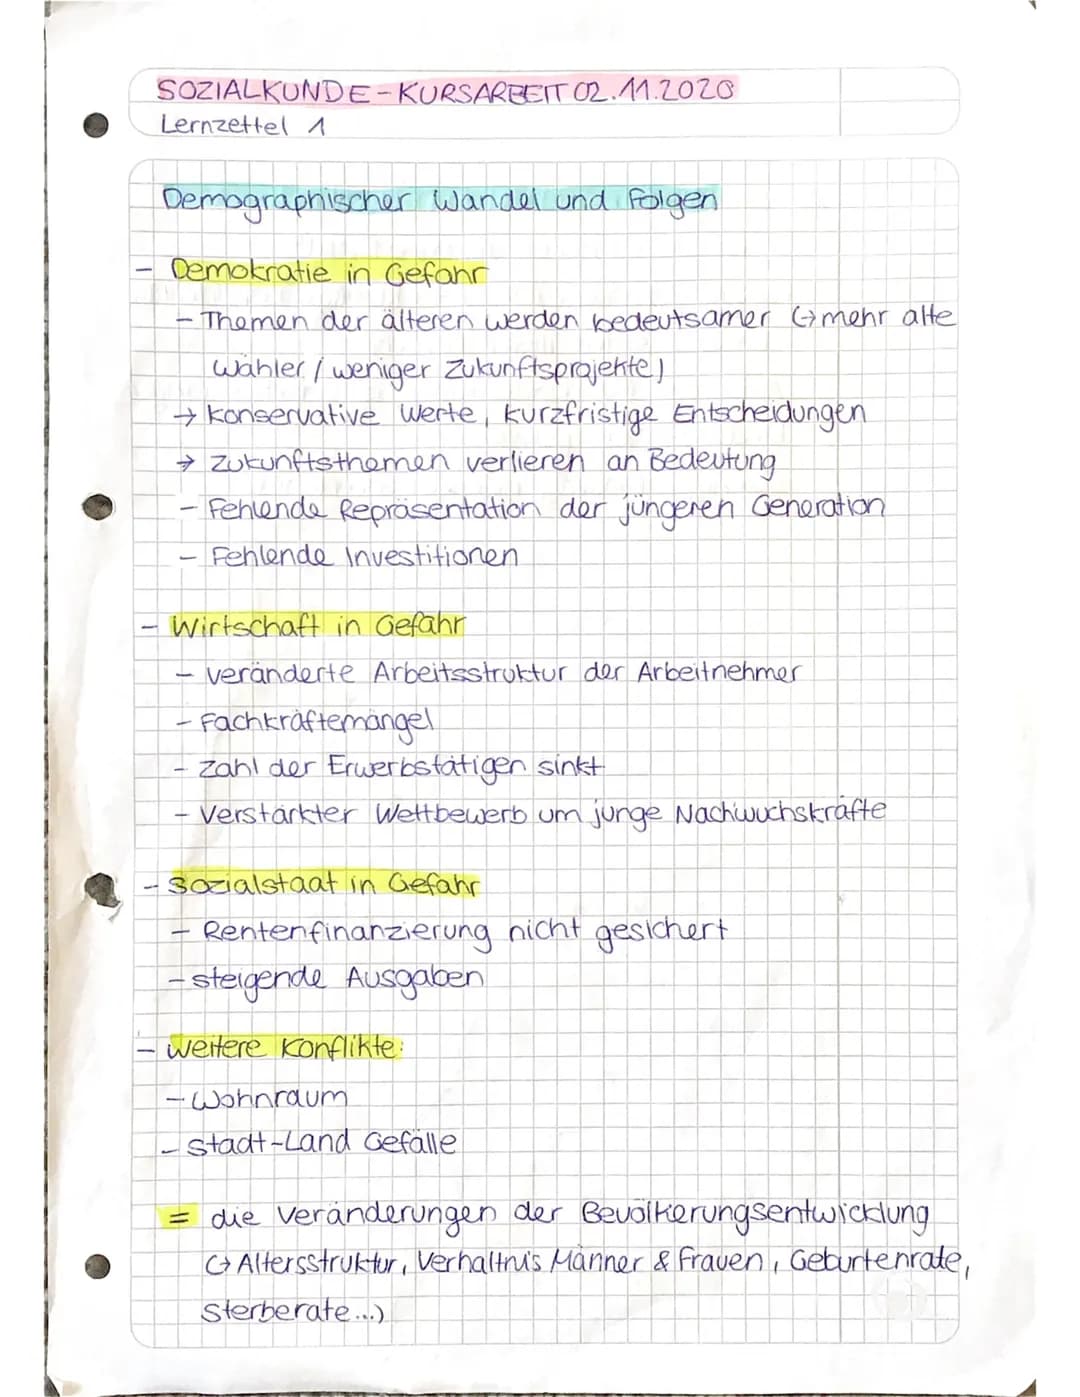 SOZIALKUNDE-KURSARBEIT 02.11.2020
Lernzettel 1
Demographischer Wandel und Folgen
- Demokratie in Gefahr
- Themen der älteren werden bedeutsamer (→ mehr alte
Wähler / weniger Zukunftsprojekte)
→ konservative Werte, kurzfristige Entscheidungen
→ Zukunftsthemen verlieren an Bedeutung
- Fehlende Repräsentation der jüngeren Generation
- Fehlende Investitionen
- Wirtschaft in Gefahr
- veränderte Arbeitsstruktur der Arbeitnehmer
- Fachkräftemangel
- Zahl der Erwerbstätigen sinkt
- Verstärkter Wettbewerb um junge Nachwuchskräfte
- Sozialstaat in Gefahr
- Rentenfinanzierung nicht gesichert
- steigende Ausgaben
- weitere Konflikte:
- Wohnraum
- Stadt-Land Gefälle
= die Veränderungen der Bevölkerungsentwicklung
(→ Altersstruktur, Verhältnis Männer & Frauen, Geburtenrate,
Sterberate...)